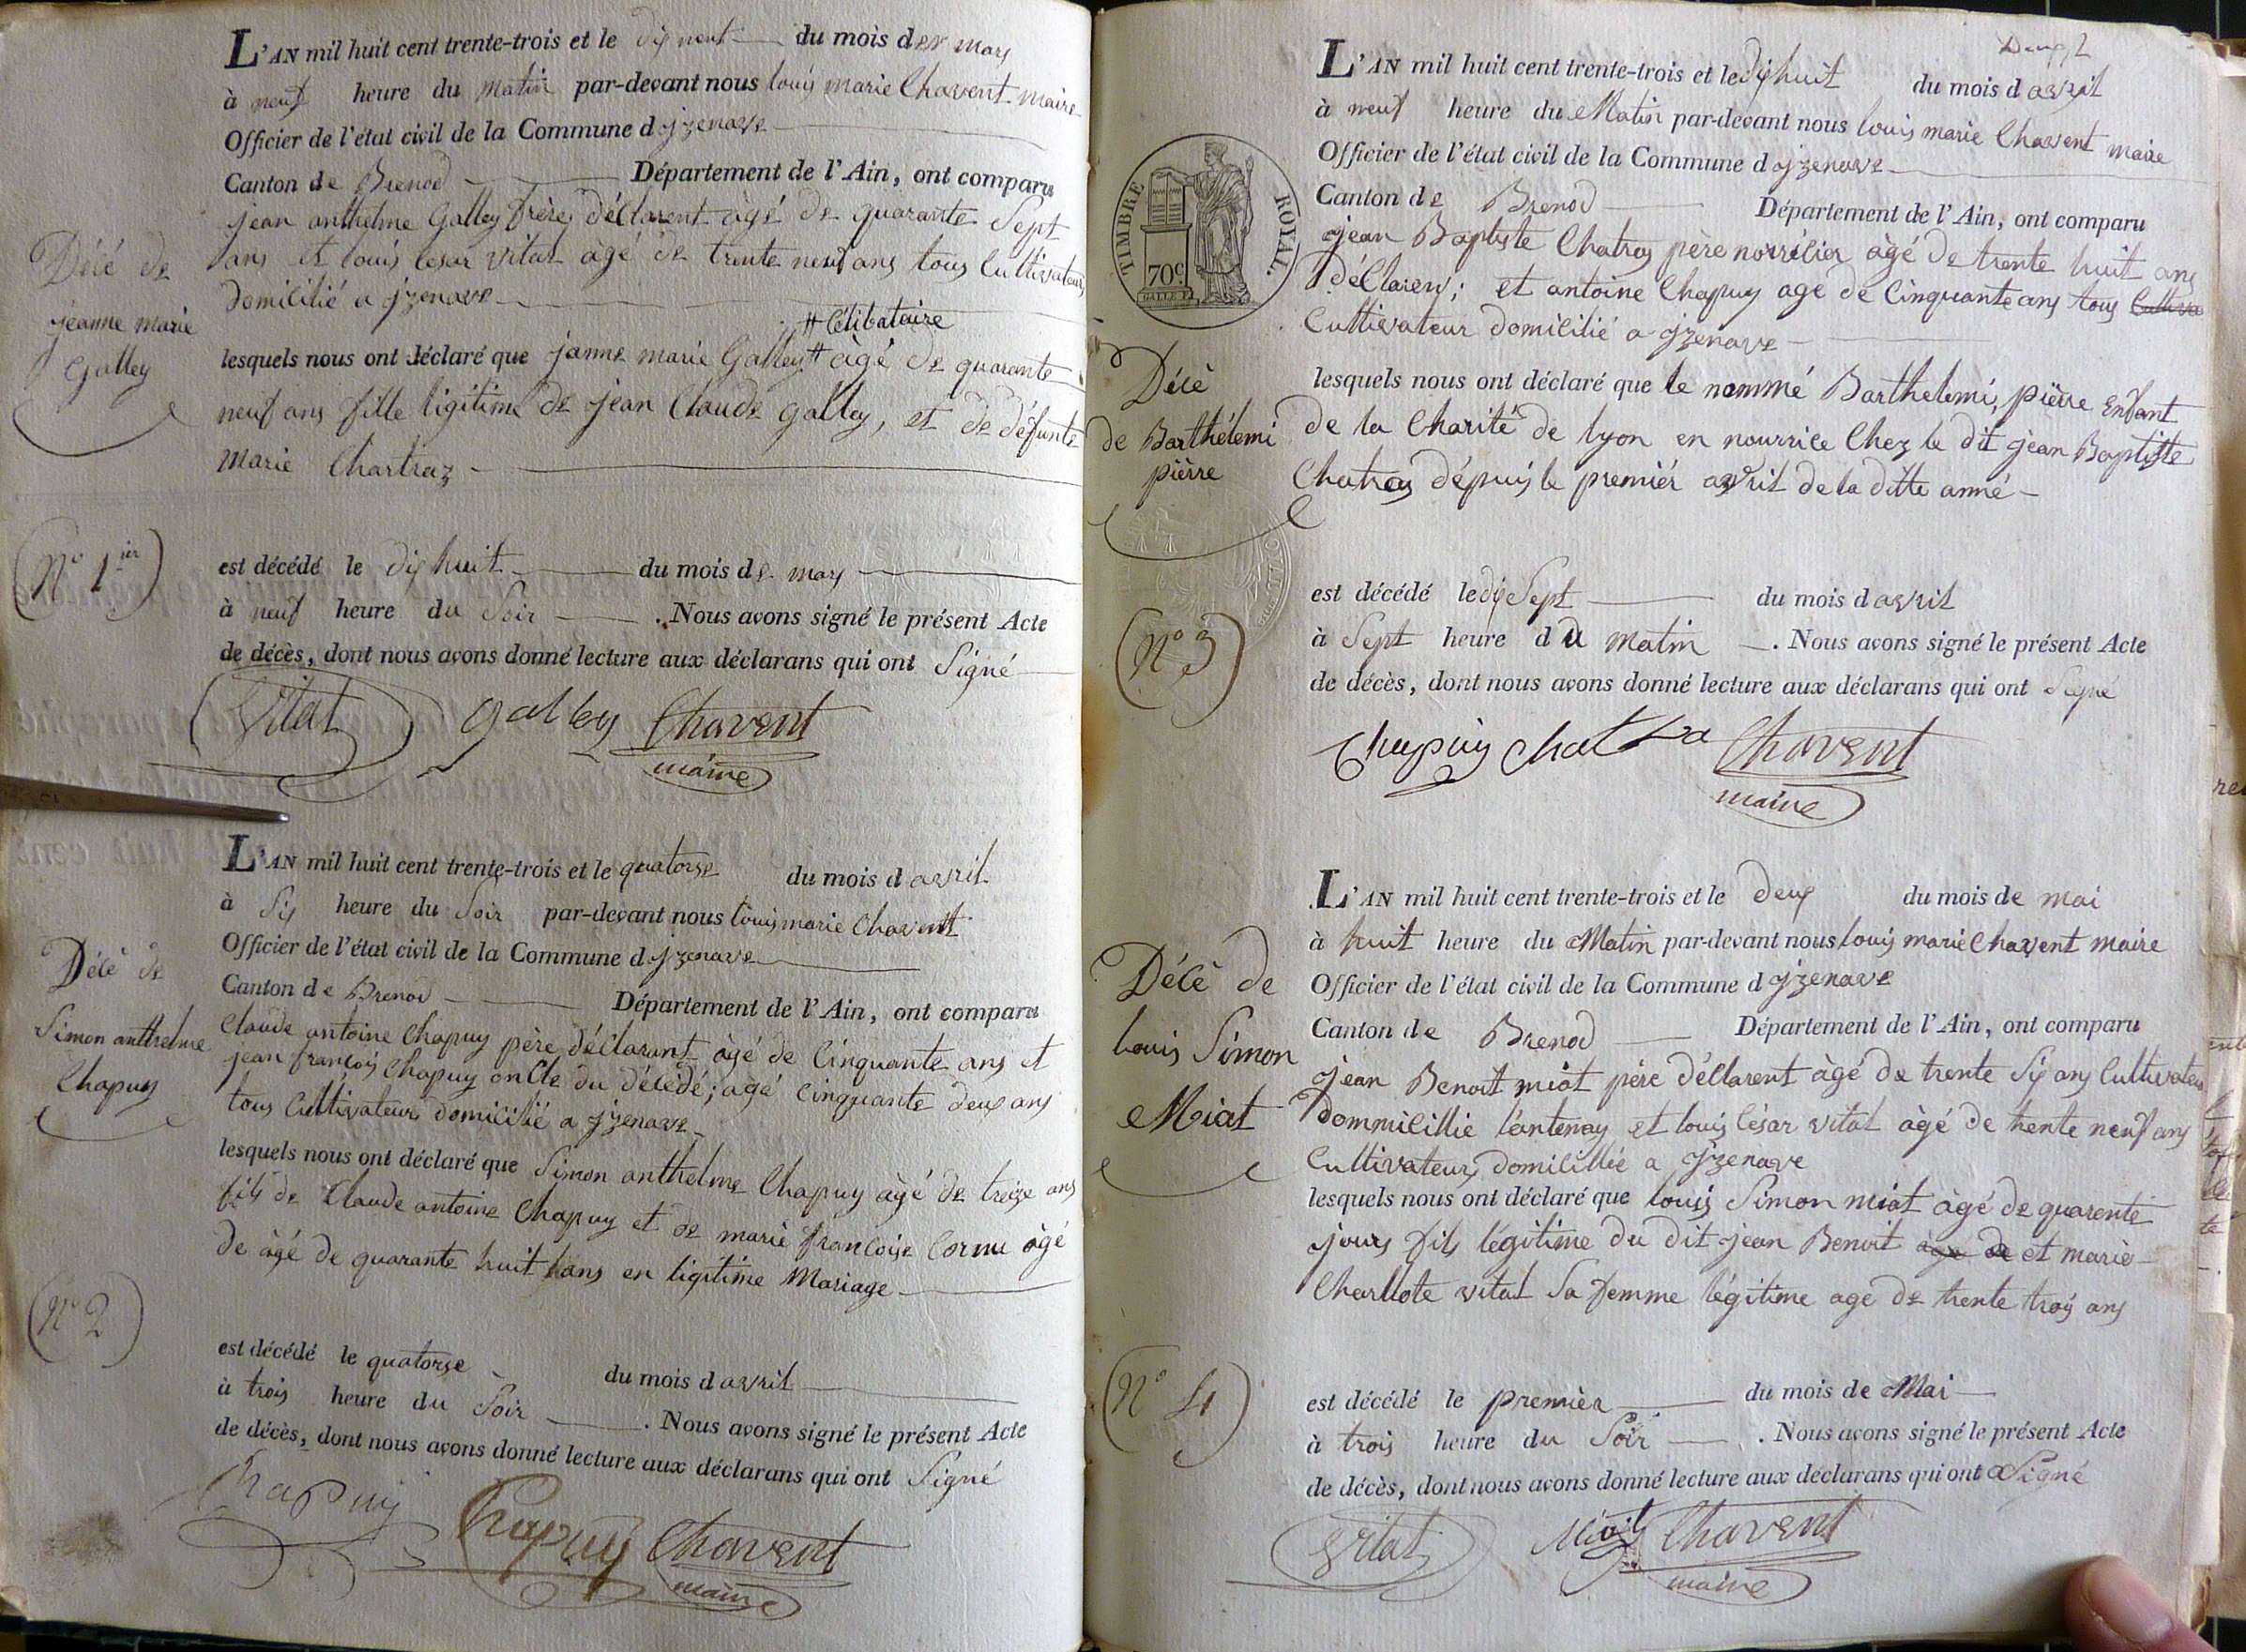 L'AN mil huit cent trente-trois et le dix neuf du mois de mars
à neuf heure du Matin par-devant nous louis marie Chavent maire
Officier de l'état civil de la Commune d jzenave
Canton de Brenod Département de l'Ain, ont comparu
jean anthelme Galley frère, déclarent àgé de quarante Sept
ans et louis Cesar vital àgé de trente neuf ans tous Cultivateurs
domicilié a jzenave
#Célibataire
lesquels nous ont déclaré que janne marie Galley# àgé de quarante
neuf ans fille ligitime de jean Claude galley, et de défunte
Marie Chartraz
Décé de
jeanne marie
Galley
N° 1ier
est décédé le dix huit du mois de mars
à neuf heure du Soir . Nous avons signé le présent Acte
de décès, dont nous avons donné lecture aux déclarans qui ont Signé
Vital galley Chavent
maire
L'AN mil huit cent trente-trois et le quatorse du mois d avril
à Six heure du Soir par-devant nous louis marie Chavent
Officier de l'état civil de la Commune d jzenave
Canton de Brenod Département de l'Ain, ont comparu
Claude antoine Chapuy père déclarant àgé de Cinquante ans et
jean françois Chapuy oncle du décédé; agé Cinquante deux ans
tous Cultivateur domicilié a jzenave
lesquels nous ont déclaré que Simon anthelme Chapuy àgé de treize ans
fils de Claude antoine Chapuy et de marie françoise Cornu àgé
de àgé de quarante huit ans en ligitime Mariage
Décè de
Simon anthelme
Chapuy
N° 2
est décédé le quatorse du mois d avril
à trois heure du Soir . Nous avons signé le présent Acte
de décès, dont nous avons donné lecture aux déclarans qui ont Signé
Chapuy Chapuy Chavent
maire
L'AN mil huit cent trente-trois et le dix huit du mois d avril
à neuf heure du Matin par-devant nous louis marie Chavent maire
Officier de l'état civil de la Commune d jzenave
Canton de Brenod Département de l'Ain, ont comparu
jean Baptiste Chatras père norricier àgé de trente huit ans
déClaren; et antoine Chapuy age de Cinquante ans tous Cultiva
Cultivateur domicilié a jzenave
lesquels nous ont déclaré que le nommé Barthelemi, pièrre Enfant
de la Charité de lyon en nourrice Chez le dit jean Baptiste
Chatras dépuis le premiér avril de la ditte anné
TIMBRE ROYAL.
70c.
Décè
de Barthélemi
pièrre
N° 3
est décédé le dix Sept du mois d avril
à Sept heure du matin . Nous avons signé le présent Acte
de décès, dont nous avons donné lecture aux déclarans qui ont Signé
Chapuy Chatra Chavent
maire
L'AN mil huit cent trente-trois et le deux du mois de mai
à huit heure du Matin par-devant nous louis marie Chavent maire
Officier de l'état civil de la Commune d jzenave
Canton de Brenod Département de l'Ain, ont comparu
jean Benoit miat père déClarent àgé de trente Six ans Cultivateur
dommicillie lantenay et louis César vital àgé de trente neuf ans
Cultivateur, domicilliée a jzenave
lesquels nous ont déclaré que louis Simon miat àgé de quarente
jours fils légitime du dit jean Benoit àgé de et marie
Charllote vital Sa femme légitime age de trente trois ans
Décè de
louis Simon
Miat
N° 4
est décédé le premièr du mois de Mai
à trois heure du Soir . Nous avons signé le présent Acte
de décès, dont nous avons donné lecture aux déclarans qui ont Signé
Vital Miat Chavent
maire